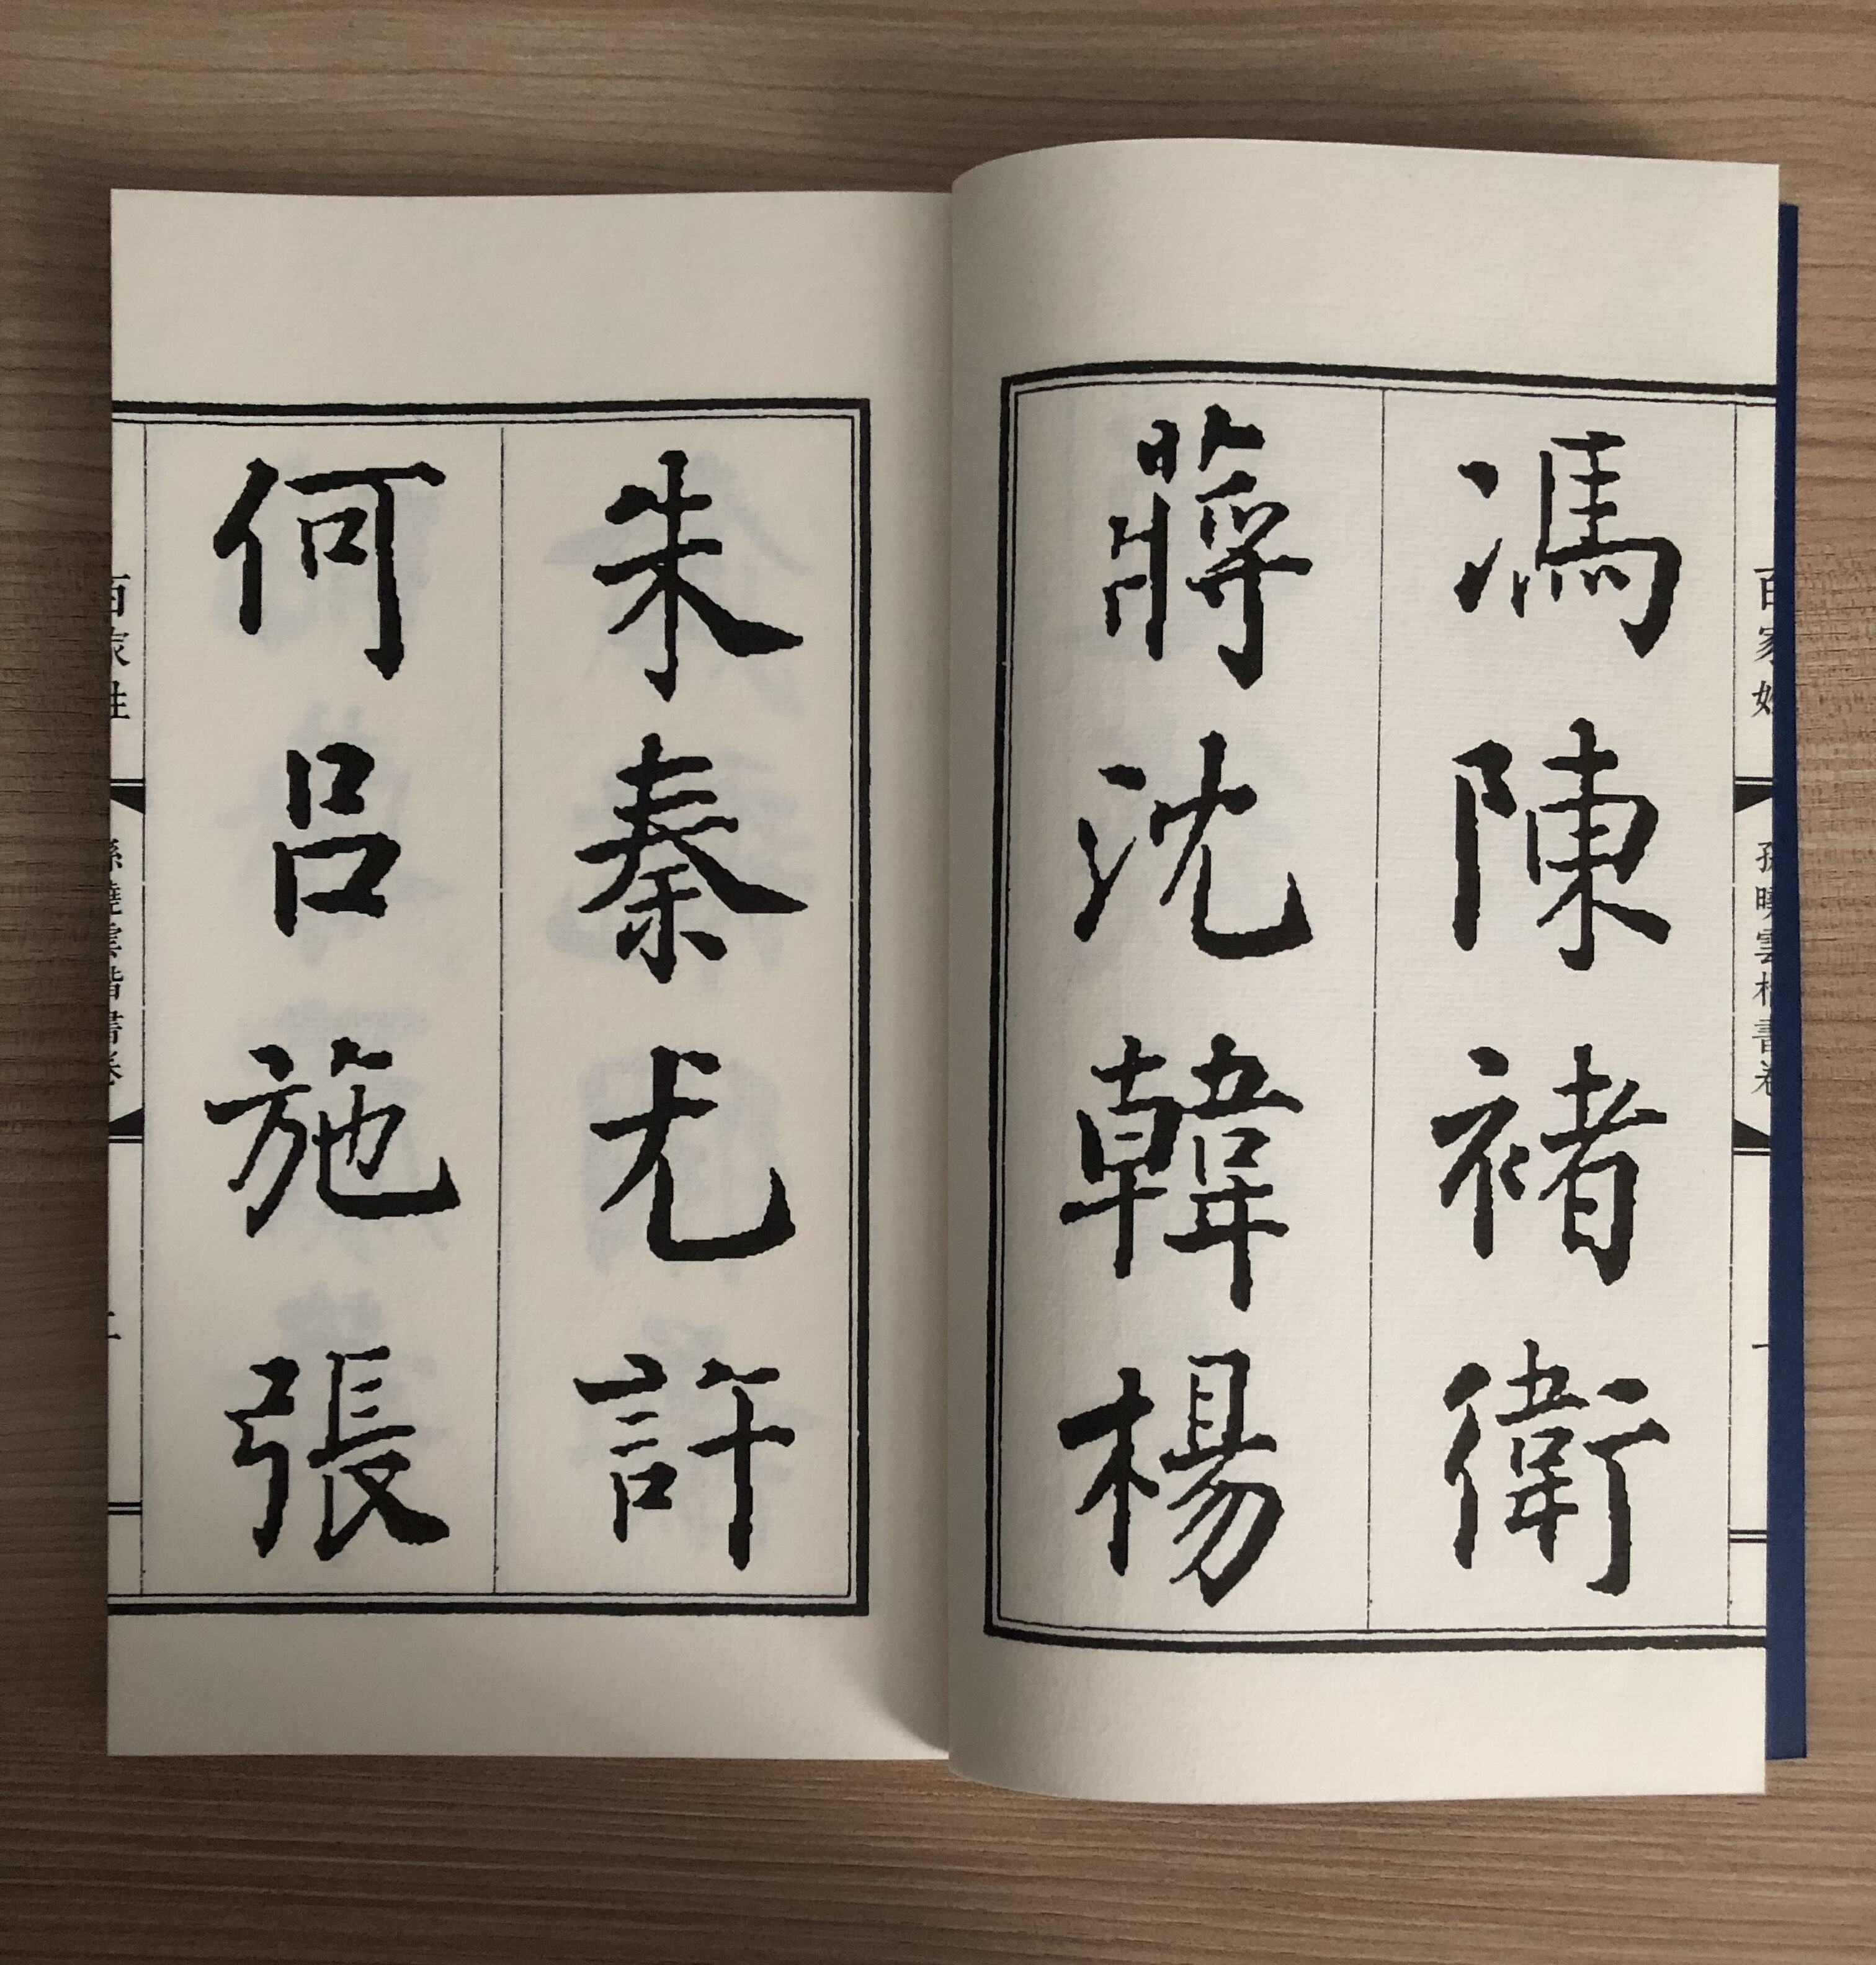 百家姓
孫曉雲楷書卷
一
馮陳褚衛
蔣沈韓楊
朱秦尤許
何呂施張
百家姓
孫曉雲楷書卷
二